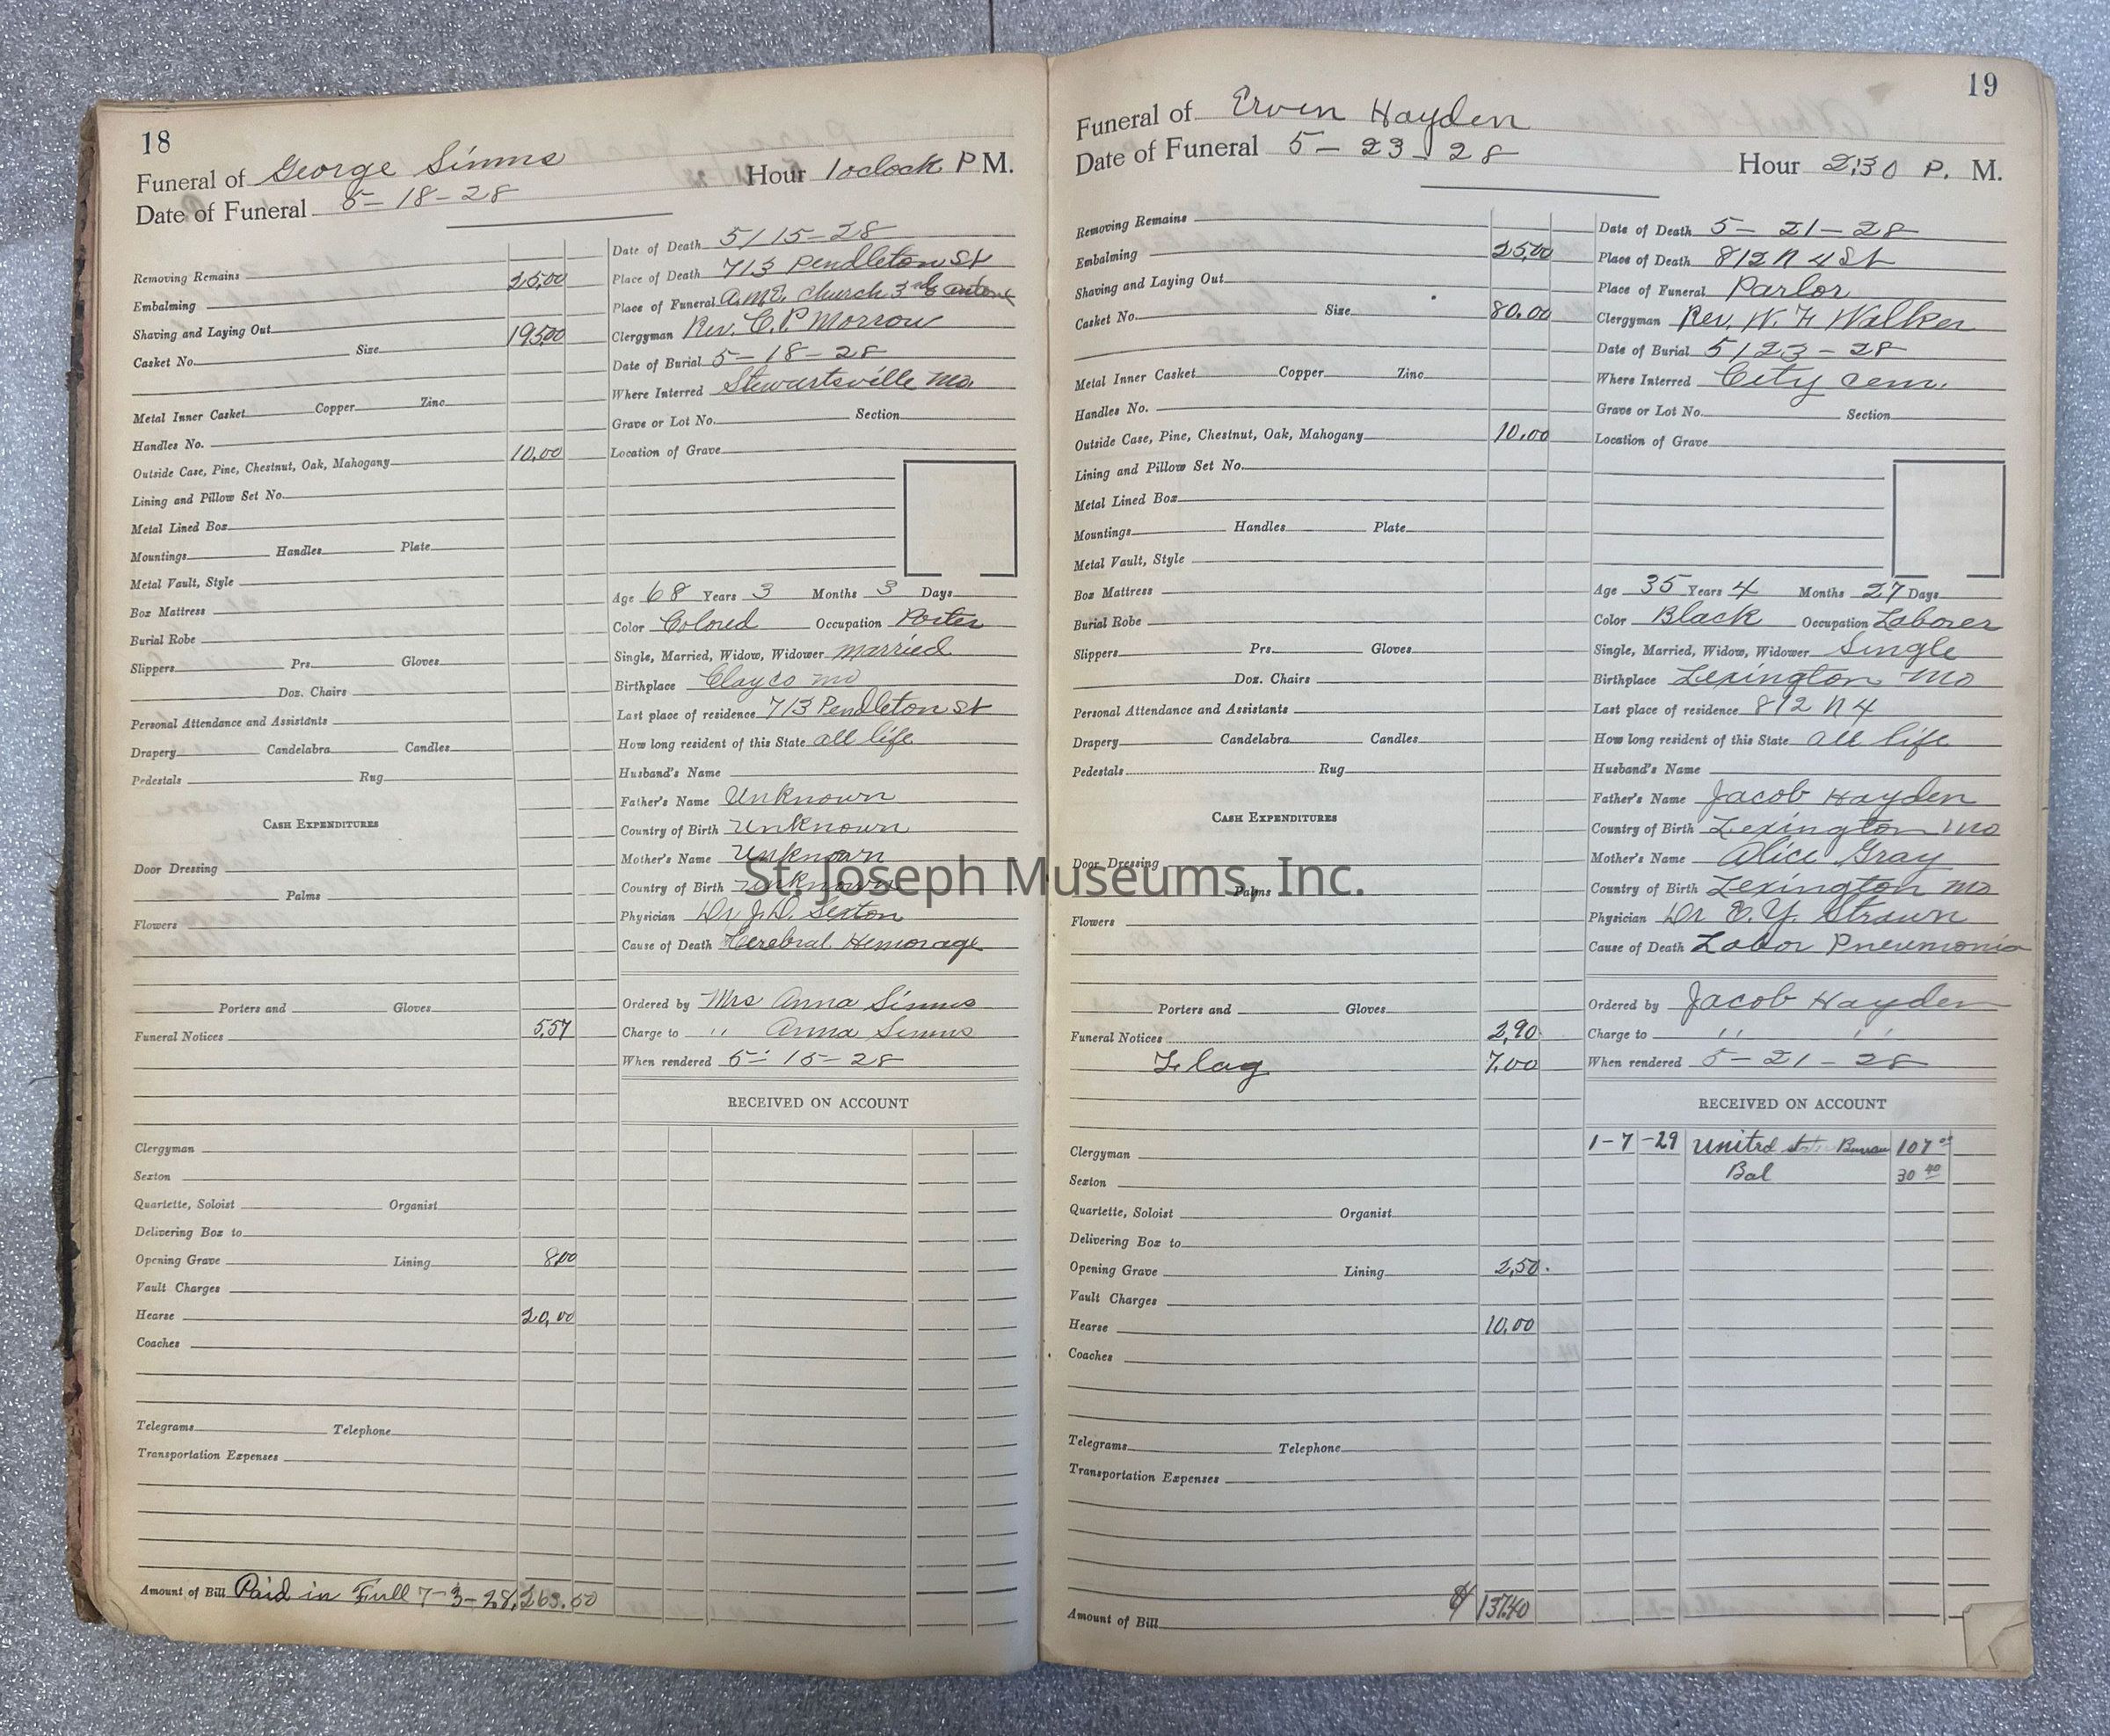 18
Funeral of George Simms
Date of Funeral 5-18-28 Hour 1 oclock P M.
Removing Remains
Embalming 25.00
Shaving and Laying Out
Casket No. Size 195.00
Metal Inner Casket Copper Zinc
Handles No.
Outside Case, Pine, Chestnut, Oak, Mahogany 10.00
Lining and Pillow Set No.
Metal Lined Box
Mountings Handles Plate
Metal Vault, Style
Box Mattress
Burial Robe
Slippers Prs. Gloves
Doz. Chairs
Personal Attendance and Assistants
Drapery Candelabra Candles
Pedestals Rug
CASH EXPENDITURES
Door Dressing
Palms
Flowers
Porters and Gloves
Funeral Notices 5.57
Clergyman
Sexton
Quartette, Soloist Organist
Delivering Box to
Opening Grave Lining 8.00
Vault Charges
Hearse 20.00
Coaches
Telegrams Telephone
Transportation Expenses
Amount of Bill Paid in Full 7-3-28, 263.50
Date of Death 5/15-28
Place of Death 713 Pendleton St
Place of Funeral A.M.E. Church 3rd &
Clergyman Rev. C.P. Morrow
Date of Burial 5-18-28
Where Interred Stewartsville Mo.
Grave or Lot No. Section
Location of Grave
Age 68 Years 3 Months 3 Days
Color Colored Occupation Porter
Single, Married, Widow, Widower married
Birthplace Clay co mo
Last place of residence 713 Pendleton St
How long resident of this State all life
Husband's Name
Father's Name Unknown
Country of Birth Unknown
Mother's Name Unknown
Country of Birth Unknown
Physician Dr J.D. Sexton
Cause of Death Cerebral Hemorage
Ordered by Mrs Anna Simms
Charge to " Anna Simms
When rendered 5-15-28
RECEIVED ON ACCOUNT
St. Joseph Museums, Inc.
19
Funeral of Erven Hayden
Date of Funeral 5-23-28 Hour 2:30 P. M.
Removing Remains
Embalming 25.00
Shaving and Laying Out
Casket No. Size 80.00
Metal Inner Casket Copper Zinc
Handles No.
Outside Case, Pine, Chestnut, Oak, Mahogany 10.00
Lining and Pillow Set No.
Metal Lined Box
Mountings Handles Plate
Metal Vault, Style
Box Mattress
Burial Robe
Slippers Prs. Gloves
Doz. Chairs
Personal Attendance and Assistants
Drapery Candelabra Candles
Pedestals Rug
CASH EXPENDITURES
Door Dressing
Palms
Flowers
Porters and Gloves
Funeral Notices 2.90
Flag 7.00
Clergyman
Sexton
Quartette, Soloist Organist
Delivering Box to
Opening Grave Lining 2.50
Vault Charges
Hearse 10.00
Coaches
Telegrams Telephone
Transportation Expenses
Amount of Bill $ 137.40
Date of Death 5-21-28
Place of Death 812 N 4 St
Place of Funeral Parlor
Clergyman Rev. W. F Walker
Date of Burial 5/23-28
Where Interred City cem.
Grave or Lot No. Section
Location of Grave
Age 35 Years 4 Months 27 Days
Color Black Occupation Laborer
Single, Married, Widow, Widower Single
Birthplace Lexington Mo
Last place of residence 812 N 4
How long resident of this State all life
Husband's Name
Father's Name Jacob Hayden
Country of Birth Lexington Mo
Mother's Name Alice Gray
Country of Birth Lexington Mo
Physician Dr E. Y. Strawn
Cause of Death Lobor Pneumonia
Ordered by Jacob Hayden
Charge to " "
When rendered 5-21-28
RECEIVED ON ACCOUNT
1-7-29 United Bureau 107 00
Bal 30 40